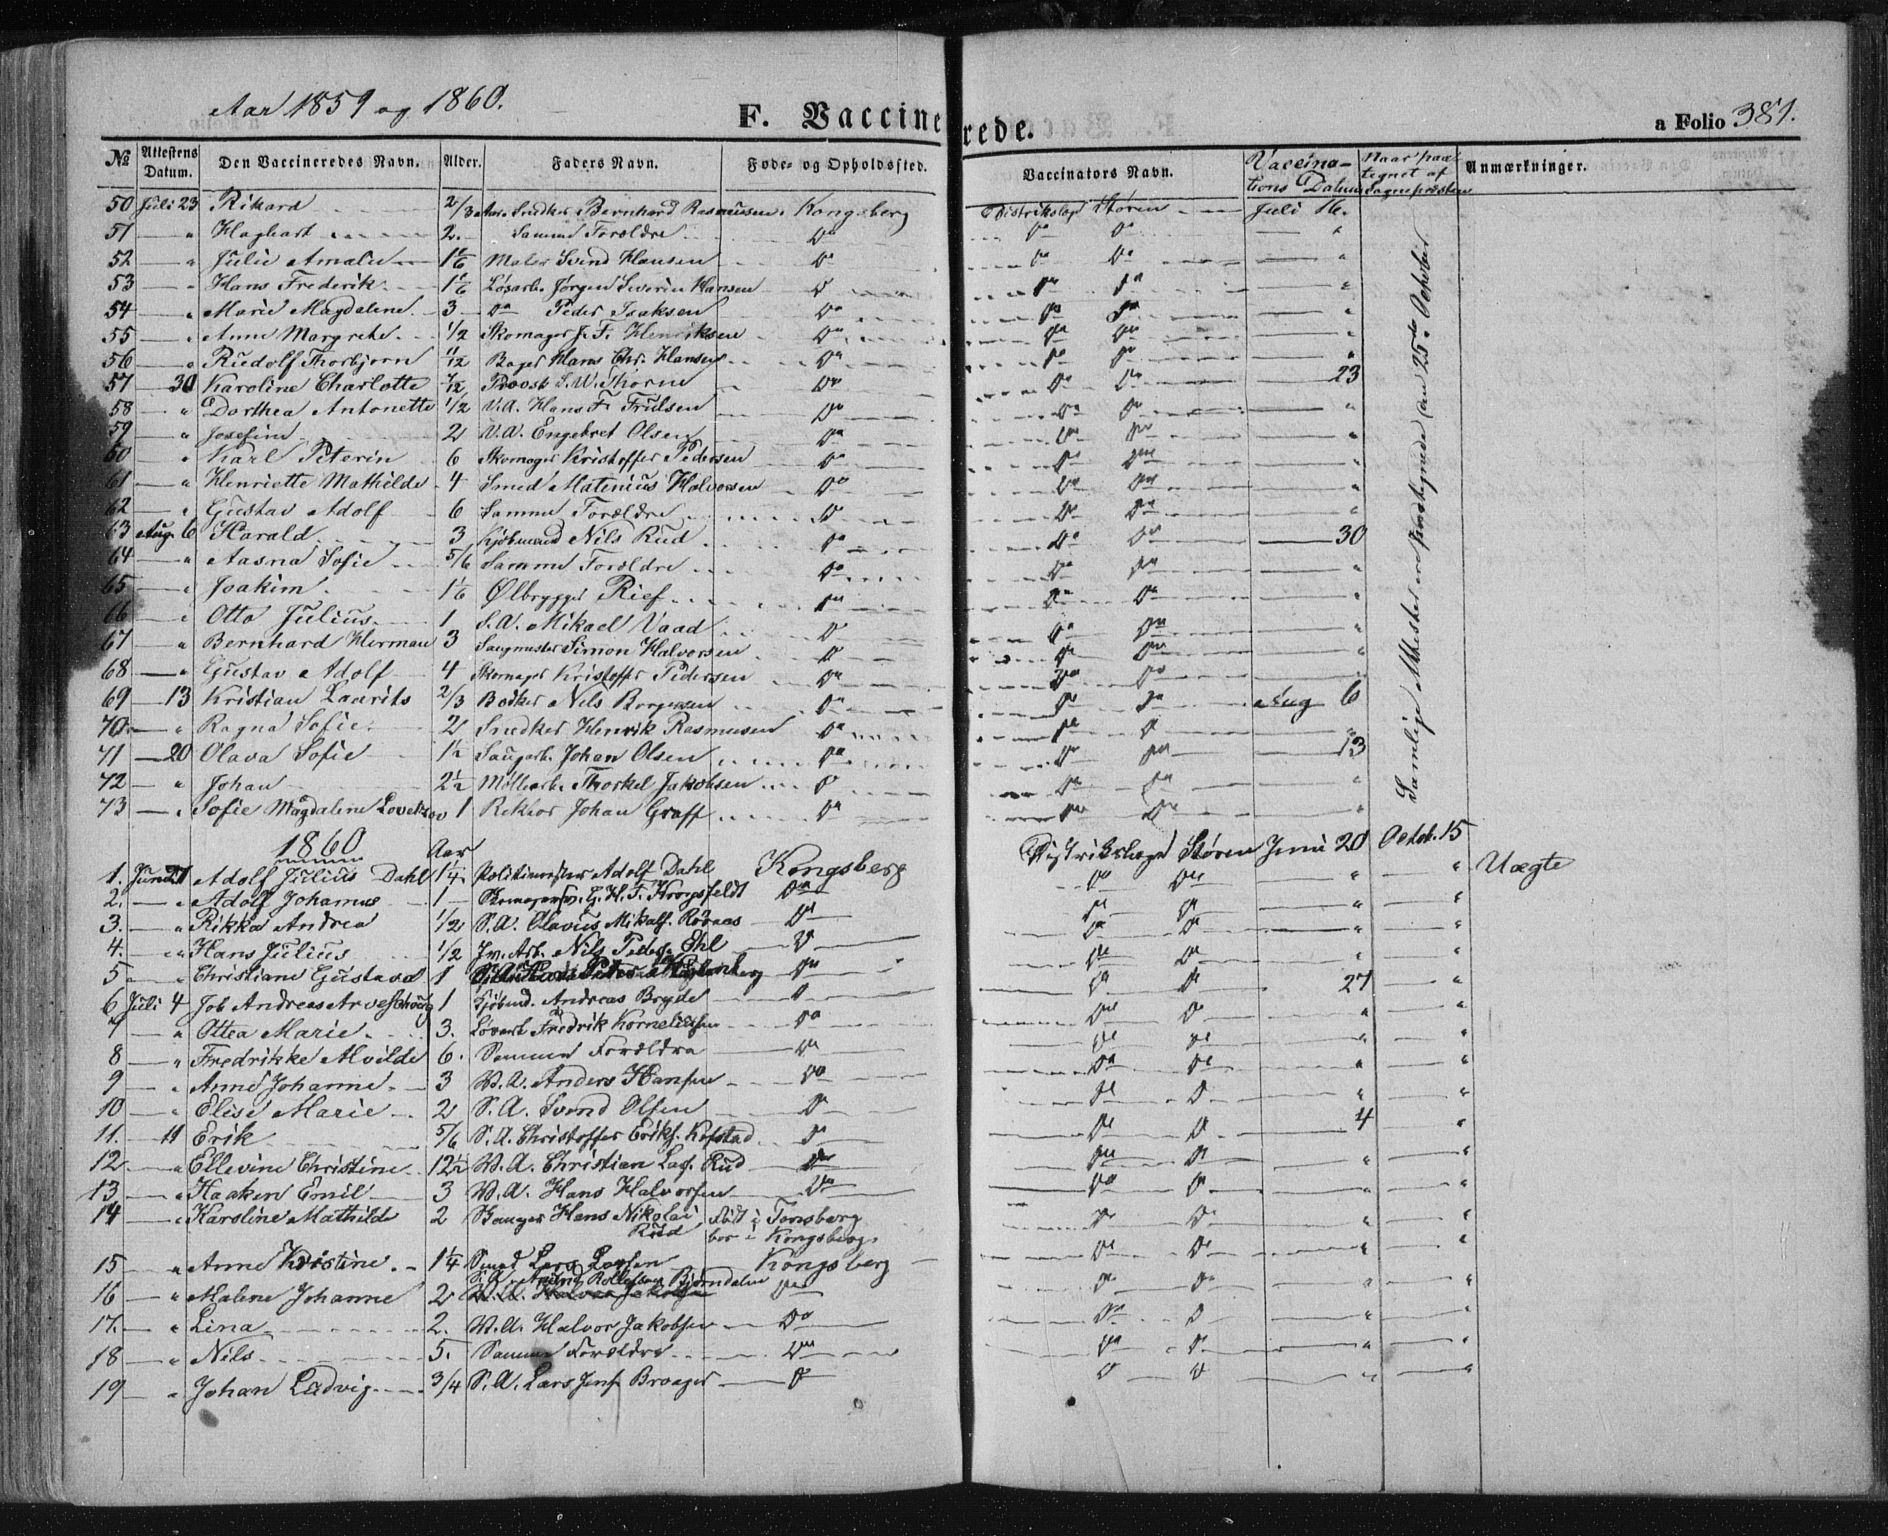 Aar 1859 og 1860.
F. Vaccinerede.
a Folio 381.
No Attestens Datum. Den Vaccineredes Navn. Alder. Faders Navn. Føde- og Opholdssted. Vaccinators Navn. Vaccinations Datum Naar paategnet af Sognepræsten Anmærkninger.
50 Juli 23 Rikard 2/3 Aar. Snedker Bernhard Rasmussen. Kongsberg Distriktslæge Støren Juli 16.
51 — " Hagbart 2. Samme Forældre Do Do Do — "
52 — " Julie Amalie 1 1/6 Maler Svend Hansen Do Do Do — "
53 — " Hans Frederik 1 1/6 Løsarb. Jørgen Severin Hansen Do Do Do — "
54 — " Marie Magdalene 3 Do Peder Isaksen Do Do Do — "
55 — " Anne Margrethe 1/2 Skomager J. F. Henriksen Do Do Do — "
56 — " Rudolf Thorbjørn 1/12 Bager Hans Chr. Hansen Do Do Do — "
57 — 30 Karoline Charlotte 7/12 Provst S. W. Thorne Do Do Do — 23
58 — " Dorthea Antonette 1/2 V.A. Hans F. Frulsen Do Do Do — "
59 — " Josefine 2 V.A. Engebret Olsen Do Do Do — "
60 — " Karl Peterin 6 Skomager Kristoffer Pedersen Do Do Do — "
61 — " Henriette Mathilde 4 Smed Matenius Halvorsen Do Do Do — "
62 — " Gustav Adolf 6 Samme Forældre Do Do Do — "
63 Aug. 6 Harald 3 Kjøbmand Nils Rud Do Do Do — 30
64 — " Aasna Sofie 5/6 Samme Forældre Do Do Do — "
65 — " Joakim 1 1/6 Ølbrygger Rief Do Do Do — "
66 — " Otto Julius 1 S.A. Mikael Vaad Do Do Do — "
67 — " Bernhard Herman 3 Saugmester Simon Halvorsen Do Do Do — "
68 — " Gustav Adolf 4 Skomager Kristoffer Pedersen Do Do Do
69 — 13 Kristian Laurits 2/3 Bødker Nils Borgersen Do Do Do Aug 6
70 — " Ragna Sofie 2 Snedker Henrik Rasmussen Do Do Do "
71 — 20 Olava Sofie 1 1/2 Saugarb. Johan Olsen Do Do Do — 13
72 — " Johan 2 1/2 Møllearb. Thorkel Jakobsen Do Do Do "
73 — " Sofie Magdalene 1 Rektor Johan Graff Do Do Do — "
Samlige Attester ere paategnede den 25de October
1860 Aar
1. Juni 21 Adolf Julius Dahl 1 1/4 Politimester Adolf Dahl Kongsberg Distriktslæge Støren Juni 20 Octob. 15
2. — " Adolf Johannes 1 G. H. F. Krogsfeldt Do Do Do — " — " Uægte
3. — " Rikka Andrea 1/2 S.A. Olavus Mikalf. Røraas Do Do Do — " — "
4. — " Hans Julius 1/2 Nils Peders. Øhl Do Do Do — " — "
5 — " Christiane Gustava 1 Do Do Do — " — "
6 Juli 4 Job Andreas 1 Kjøbmd. Andreas Bryde Do Do Do 27 — "
7 — " Ottea Marie 3. Fredrik Korneliussen Do Do Do " — "
8 — " Fredrikke Alvilde 6. Samme Forældre Do Do Do " — "
9 — " Anne Johanne 3 V.A. Anders Hansen Do Do Do " — "
10 — " Elise Marie 2 S.A. Svend Olsen Do Do Do " — "
11. — 11 Erik 5/6 S.A. Christoffer Eriks. Kofstad Do Do Do 4 — "
12 — " Ellevine Christine 12 1/2 V.A. Christian Lars. Rud Do Do Do — " — "
13 — " Haaken Emil 3 V.A. Hans Halvorsen Do Do Do — " — "
14 — " Karoline Mathilde 2 Hans Nikolai Rud Født i Tønsberg bor i Kongsberg Do Do — " — "
15 — " Anne Kristine 1 1/4 Smed Lars Larsen Kongsberg Do Do — " — "
16 — " Malene Johanne 2 S.A. Bjørndalen Do Do Do — " — "
17. — " Lina 2. V.A. Halvor Jakobsen Do Do Do — " — "
18 — " Nils 5. Samme Forældre Do Do Do — " — "
19 — " Johan Ludvig 3/4 S.A. Lars Jens. Braager Do Do Do — " — "